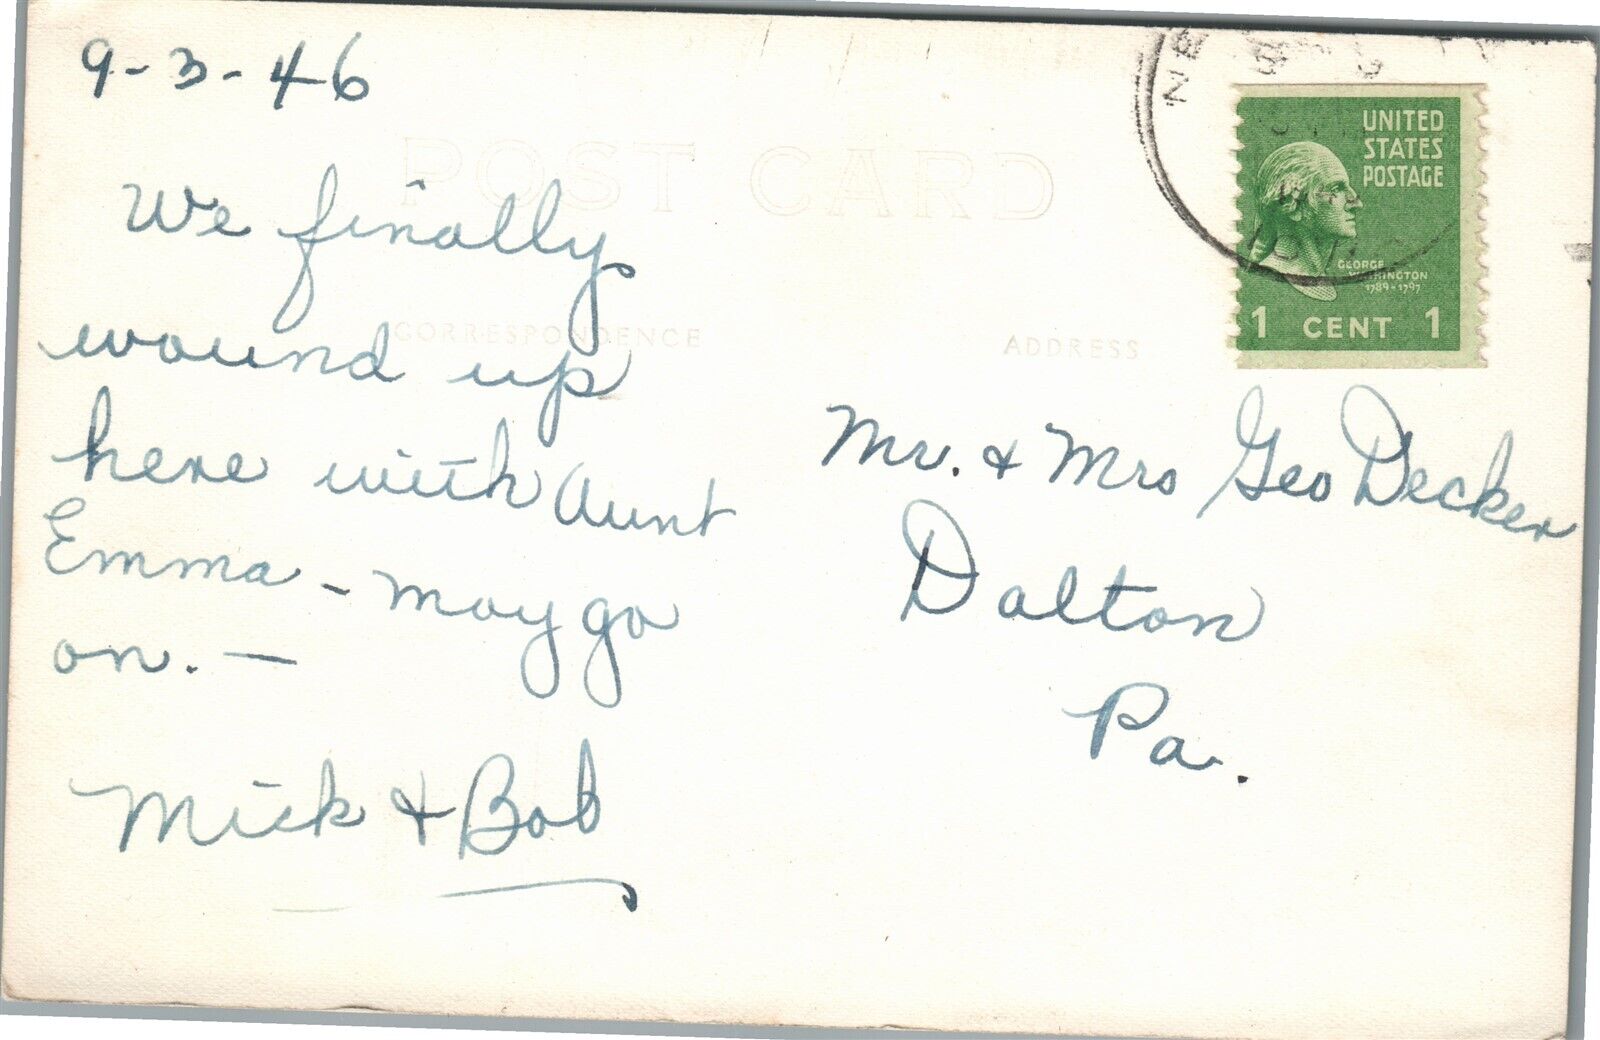 9-3-46
POST CARD
We finally
wound up
here with Aunt
Emma - may go
on. —
Mick & Bob
CORRESPONDENCE
ADDRESS
UNITED
STATES
POSTAGE
GEORGE
WASHINGTON
1789-1797
1 CENT 1
Mr. & Mrs Geo Decker
Dalton
Pa.